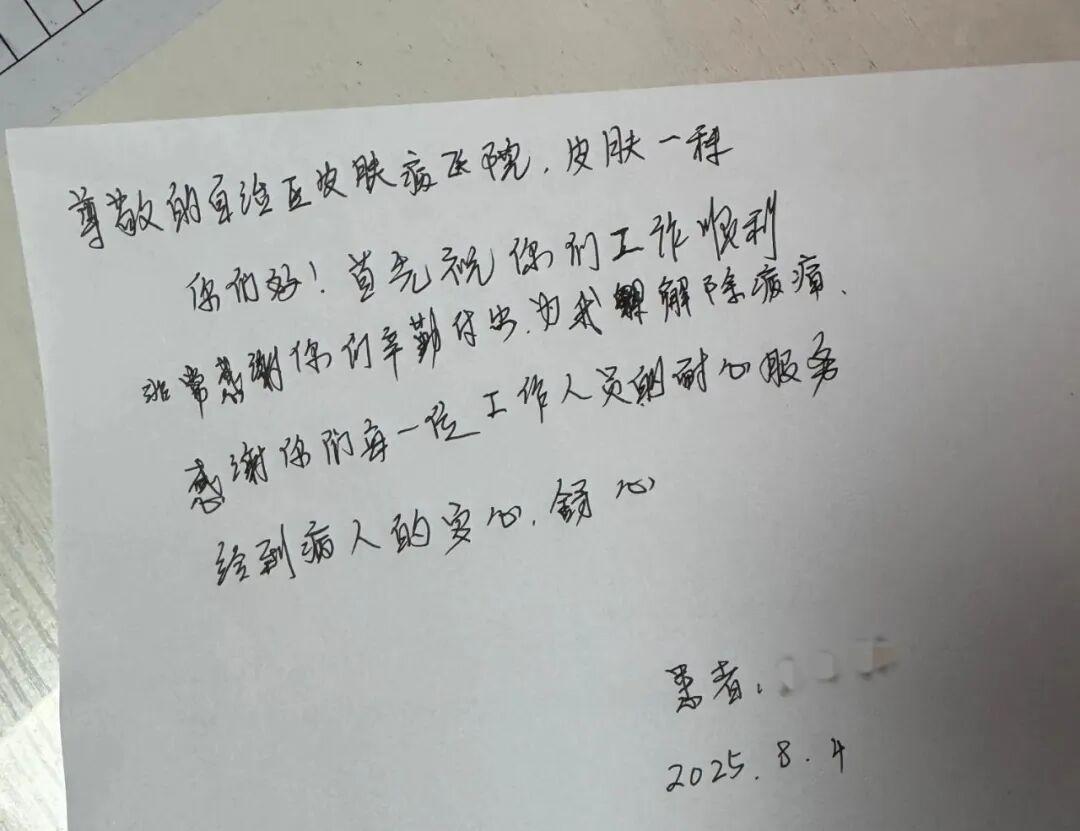 尊敬的自治区皮肤病医院,皮肤一科
你们好!首先祝你们工作顺利
非常感谢你们辛勤付出,为我解除病痛、
感谢你们每一位工作人员的耐心服务
给到病人的安心,舒心
患者:
2025.8.4